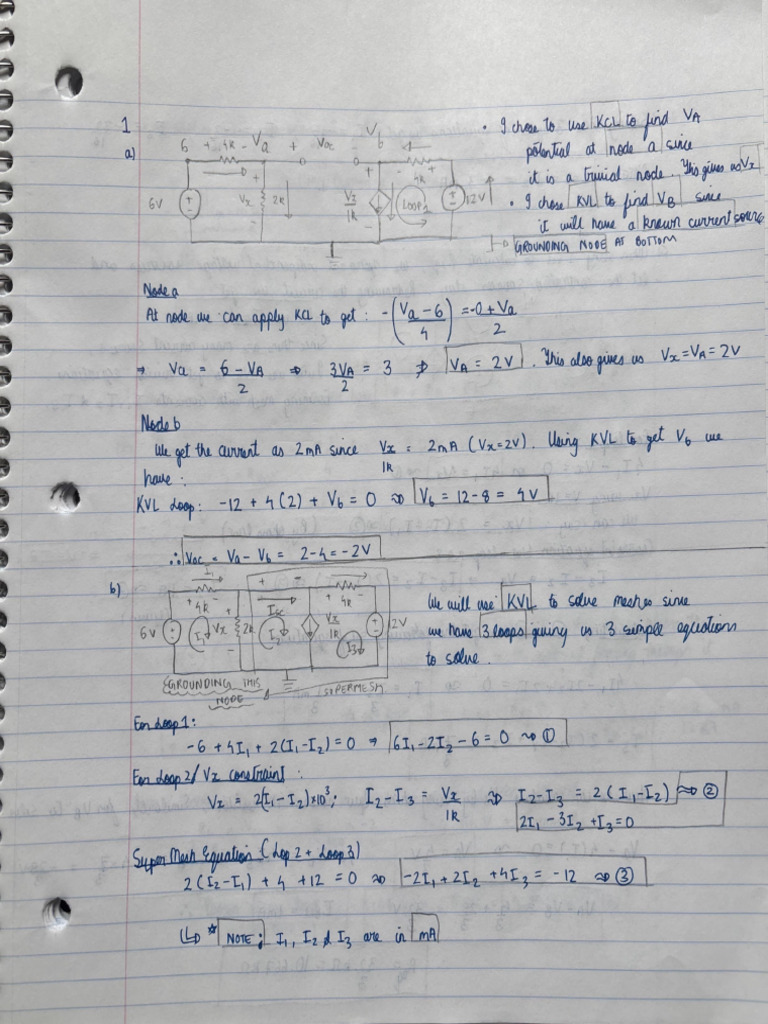 1
a)
6 + 4k - Va + Voc - Vb
+ Vx - 2k
6V
+ Vx/1k LOOP2 4k 12V
• I chose to use KCL to find VA
potential at node a since
it is a trivial node. This gives us Vx
• I chose KVL to find VB since
it will have a known current source
GROUNDING NODE AT BOTTOM
Node a
At node we can apply KCL to get: -(Va - 6 / 4) = -0 + Va / 2
⇒ Va = 6 - VA / 2 ⇒ 3VA / 2 = 3 ⇒ VA = 2V. This also gives us Vx = VA = 2V
Node b
We get the current as 2mA since Vx / 1k = 2mA (Vx = 2V). Using KVL to get Vb we
have:
KVL Loop: -12 + 4(2) + Vb = 0 ⇒ Vb = 12 - 8 = 4V
∴ Voc = Va - Vb = 2 - 4 = -2V
b)
I1 + 4k - + - + 4k -
6V I1 Vx 2k Isc I2 Vx/1k I3 12V
GROUNDING THIS NODE SUPERMESH
We will use KVL to solve meshes since
we have 3 loops giving us 3 simple equations
to solve.
For Loop 1:
-6 + 4I1 + 2(I1 - I2) = 0 ⇒ 6I1 - 2I2 - 6 = 0 ⇝ ①
For Loop 2/Vx constraint:
Vx = 2(I1 - I2)×10³; I2 - I3 = Vx / 1k ⇒ I2 - I3 = 2(I1 - I2) ⇝ ②
2I1 - 3I2 + I3 = 0
Super Mesh Equation (Loop 2 + Loop 3)
2(I2 - I1) + 4 + 12 = 0 ⇒ -2I1 + 2I2 + 4I3 = -12 ⇝ ③
↳ * NOTE: I1, I2 & I3 are in mA